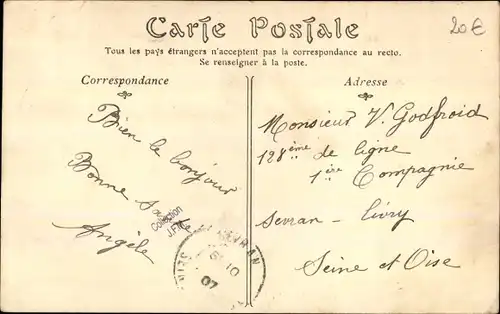 Carte Postale
20€
Tous les pays étrangers n'acceptent pas la correspondance au recto.
Se renseigner à la poste.
Correspondance
Bien le bonjour
Bonne santé
Angèle
Collection
Adresse
Monsieur V. Godfroid
128ème de ligne
1ère Compagnie
Sevran - Livry
Seine et Oise
SEVRAN
10
07